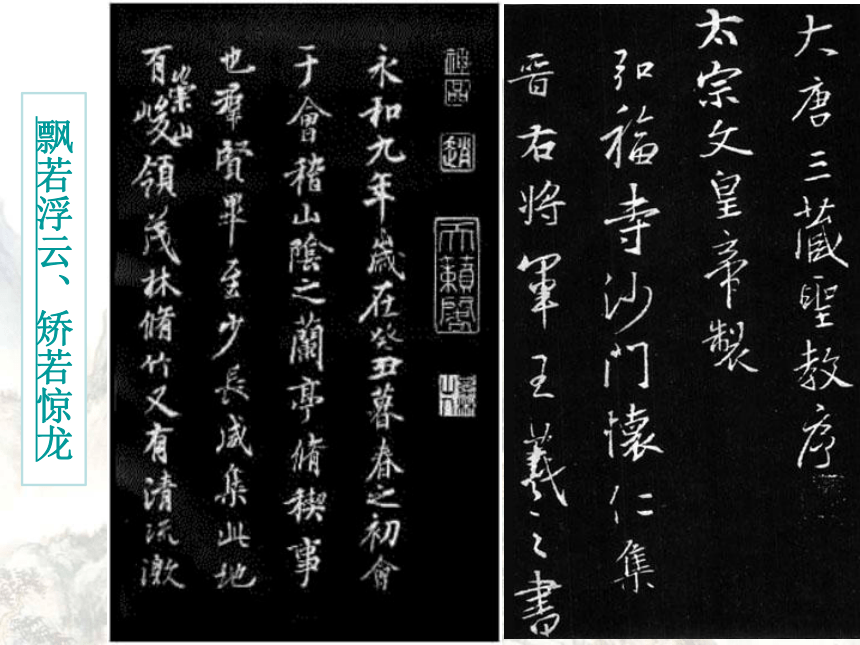 飘若浮云、矫若惊龙
永和九年歲在癸丑暮春之初會
于會稽山陰之蘭亭脩稧事
也羣賢畢至少長咸集此地
有崇山峻領茂林脩竹又有清流激
神品
趙
天籟閣
大唐三藏聖教序
太宗文皇帝製
弘福寺沙門懷仁集
晉右將軍王羲之書